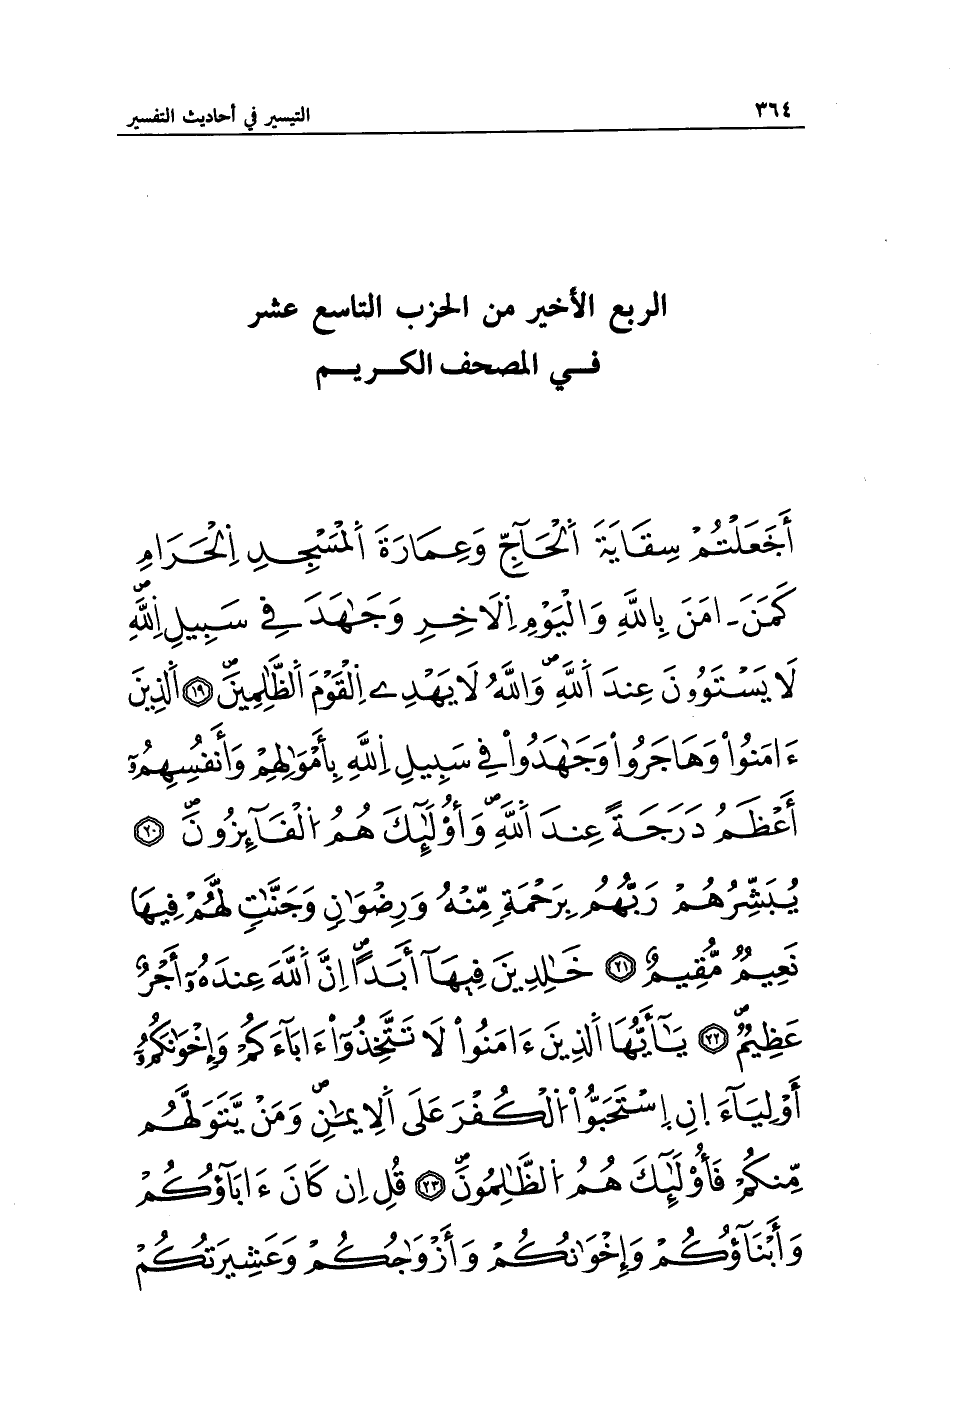 ٣٦٤
التيسير في أحاديث التفسير
الربع الأخير من الحزب التاسع عشر
فـي المصحف الكريـم
أَجَعَلْتُمْ سِقَايَةَ اَ۬لْحَآجِّ وَعِمَارَةَ اَ۬لْمَسْجِدِ اِ۬لْحَرَامِ
كَمَنَ ـ امَنَ بِاللَّهِ وَالْيَوْمِ اِ۬لَاخِرِ وَجَٰهَدَ فِي سَبِيلِ اِ۬للَّهِۖ
لَا يَسْتَوُۥنَ عِندَ اَ۬للَّهِۖ وَاللَّهُ لَا يَهْدِے اِ۬لْقَوْمَ اَ۬لظَّٰلِمِينَۖ ١٩ اَ۬لذِينَ
ءَامَنُواْ وَهَاجَرُواْ وَجَٰهَدُواْ فِي سَبِيلِ اِ۬للَّهِ بِأَمْوَٰلِهِمْ وَأَنفُسِهِمُۥٓ
أَعْظَمُ دَرَجَةً عِندَ اَ۬للَّهِۖ وَأُوْلَٰٓئِكَ هُمُ اُ۬لْفَآئِزُونَۖ ٢٠
يُبَشِّرُهُمْ رَبُّهُم بِرَحْمَةٍ مِّنْهُ وَرِضْوَٰنٍ وَجَنَّٰتٍ لَّهُمْ فِيهَا
نَعِيمٌ مُّقِيمٌ ٢١ خَٰلِدِينَ فِيهَآ أَبَداًۖ اِنَّ اَ۬للَّهَ عِندَهُۥٓ أَجْرٌ
عَظِيمٌۖ ٢٢ يَٰٓأَيُّهَا اَ۬لذِينَ ءَامَنُواْ لَا تَتَّخِذُوٓاْ ءَابَآءَكُمْ وَإِخْوَٰنَكُمُۥٓ
أَوْلِيَآءَ اِنِ اِ۪سْتَحَبُّواْ اُ۬لْكُفْرَ عَلَى اَ۬لِايمَٰنِۖ وَمَنْ يَّتَوَلَّهُم
مِّنكُمْ فَأُوْلَٰٓئِكَ هُمُ اُ۬لظَّٰلِمُونَۖ ٢٣ قُلِ اِن كَانَ ءَابَآؤُكُمْ
وَأَبْنَآؤُكُمْ وَإِخْوَٰنُكُمْ وَأَزْوَٰجُكُمْ وَعَشِيرَتُكُمْ